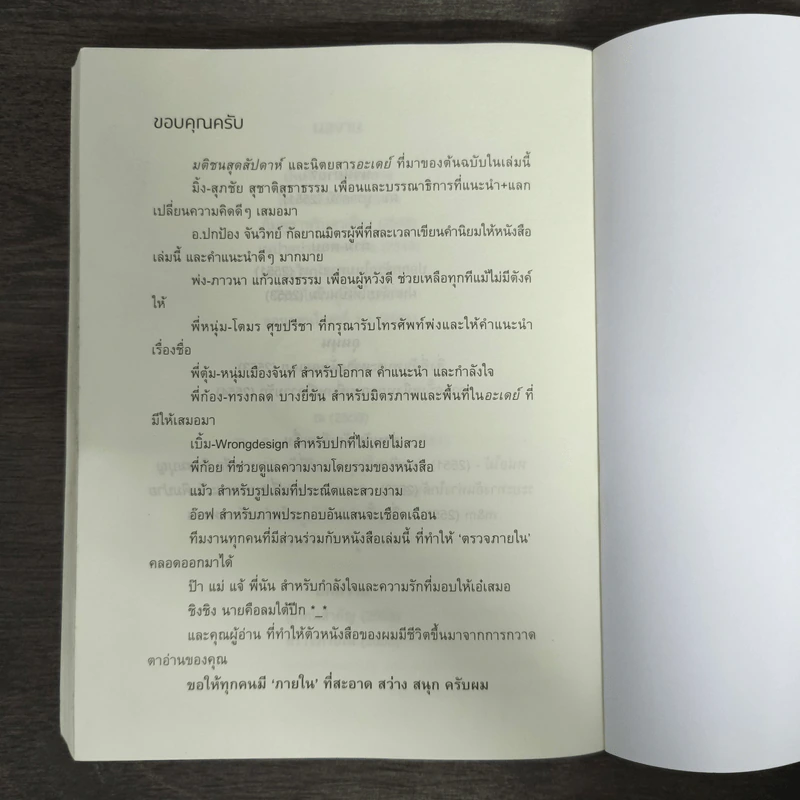 ขอบคุณครับ
มติชนสุดสัปดาห์ และนิตยสารอะเดย์ ที่มาของต้นฉบับในเล่มนี้
มิ้ง-สุภชัย สุชาติสุธาธรรม เพื่อนและบรรณาธิการที่แนะนำ+แลก
เปลี่ยนความคิดดีๆ เสมอมา
อ.ปกป้อง จันวิทย์ กัลยาณมิตรผู้พี่ที่สละเวลาเขียนคำนิยมให้หนังสือ
เล่มนี้ และคำแนะนำดีๆ มากมาย
พ่ง-ภาวนา แก้วแสงธรรม เพื่อนผู้หวังดี ช่วยเหลือทุกทีแม้ไม่มีตังค์
ให้
พี่หนุ่ม-โตมร ศุขปรีชา ที่กรุณารับโทรศัพท์พ่งและให้คำแนะนำ
เรื่องชื่อ
พี่ตุ้ม-หนุ่มเมืองจันท์ สำหรับโอกาส คำแนะนำ และกำลังใจ
พี่ก้อง-ทรงกลด บางยี่ขัน สำหรับมิตรภาพและพื้นที่ในอะเดย์ ที่
มีให้เสมอมา
เบิ้ม-Wrongdesign สำหรับปกที่ไม่เคยไม่สวย
พี่ก้อย ที่ช่วยดูแลความงามโดยรวมของหนังสือ
แม้ว สำหรับรูปเล่มที่ประณีตและสวยงาม
อ๊อฟ สำหรับภาพประกอบอันแสนจะเชือดเฉือน
ทีมงานทุกคนที่มีส่วนร่วมกับหนังสือเล่มนี้ ที่ทำให้ ‘ตรวจภายใน’
คลอดออกมาได้
ป๊า แม่ แจ้ พี่นัน สำหรับกำลังใจและความรักที่มอบให้เอ๋เสมอ
ชิงชิง นายคือลมใต้ปีก *_*
และคุณผู้อ่าน ที่ทำให้ตัวหนังสือของผมมีชีวิตขึ้นมาจากการกวาด
ตาอ่านของคุณ
ขอให้ทุกคนมี ‘ภายใน’ ที่สะอาด สว่าง สนุก ครับผม